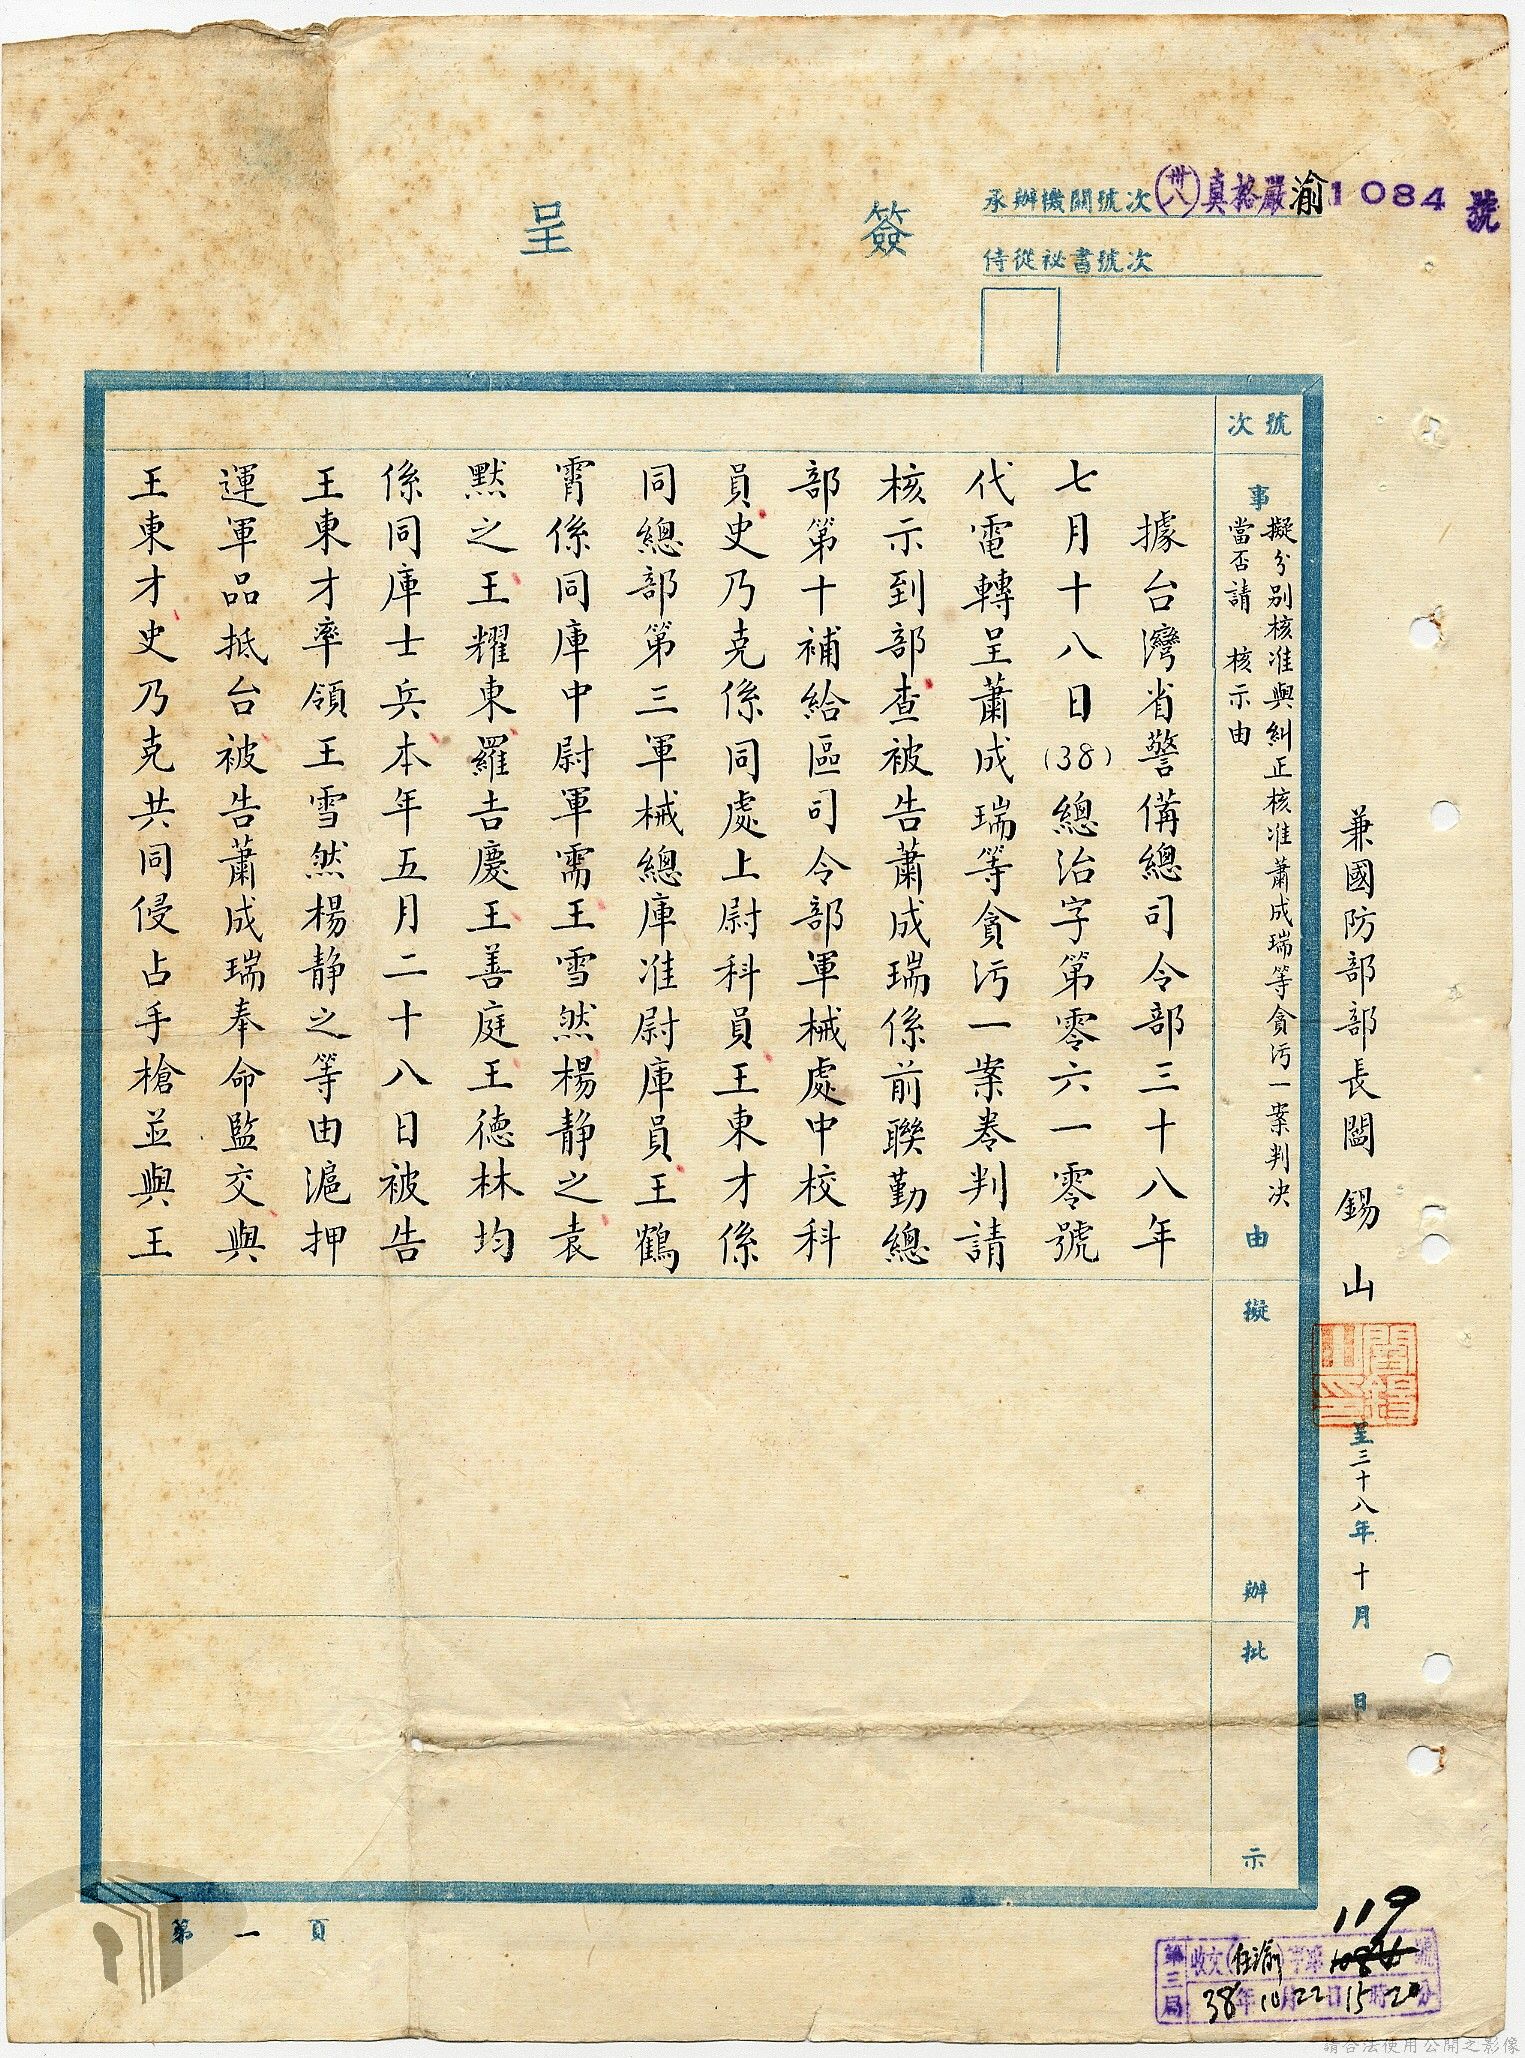 簽呈
承辦機關號次 卅八 真恪嚴渝1084號
侍從祕書號次
兼國防部部長閻錫山
呈三十八年十月 日
號次
事由
擬分別核准與糾正核准蕭成瑞等貪污一案判決
當否請 核示由
擬辦
批示
據台灣省警備總司令部三十八年
七月十八日(38)總治字第零六一零號
代電轉呈蕭成瑞等貪污一案卷判請
核示到部查被告蕭成瑞係前聯勤總
部第十補給區司令部軍械處中校科
員史乃克係同處上尉科員王東才係
同總部第三軍械總庫准尉庫員王鶴
霄係同庫中尉軍需王雪然楊靜之袁
默之王耀東羅吉慶王善庭王德林均
係同庫士兵本年五月二十八日被告
王東才率領王雪然楊靜之等由滬押
運軍品抵台被告蕭成瑞奉命監交與
王東才史乃克共同侵占手槍並與王
第一頁
119
第三局 收文(任渝)字第1084號
38年10月22日15時20分
請合法使用公開之影像